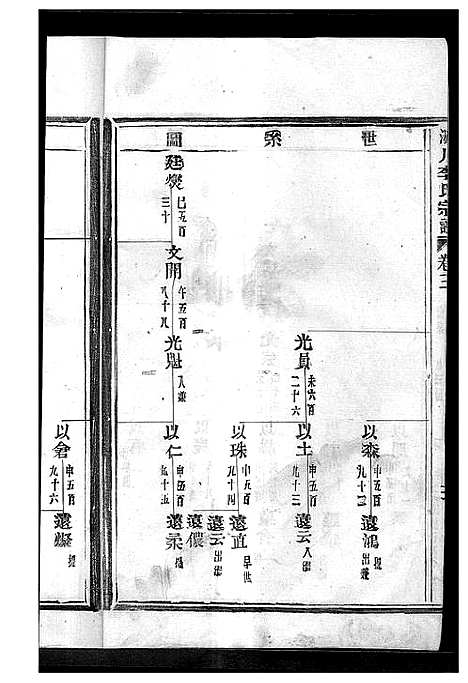 李氏宗譜
卷三
世系圖
以森 申五百九十三
遠鴻 出繼
光員 未六百二十六
以土 申五百九十三
遠云 入繼
以珠 申五百九十四
遠直 早世
遠云 出繼
廷燮 巳五百三十
文開 午五百八十八
光魁 入繼
以仁 申五百九十五
遠儂
遠
以倉 申五百九十六
遠